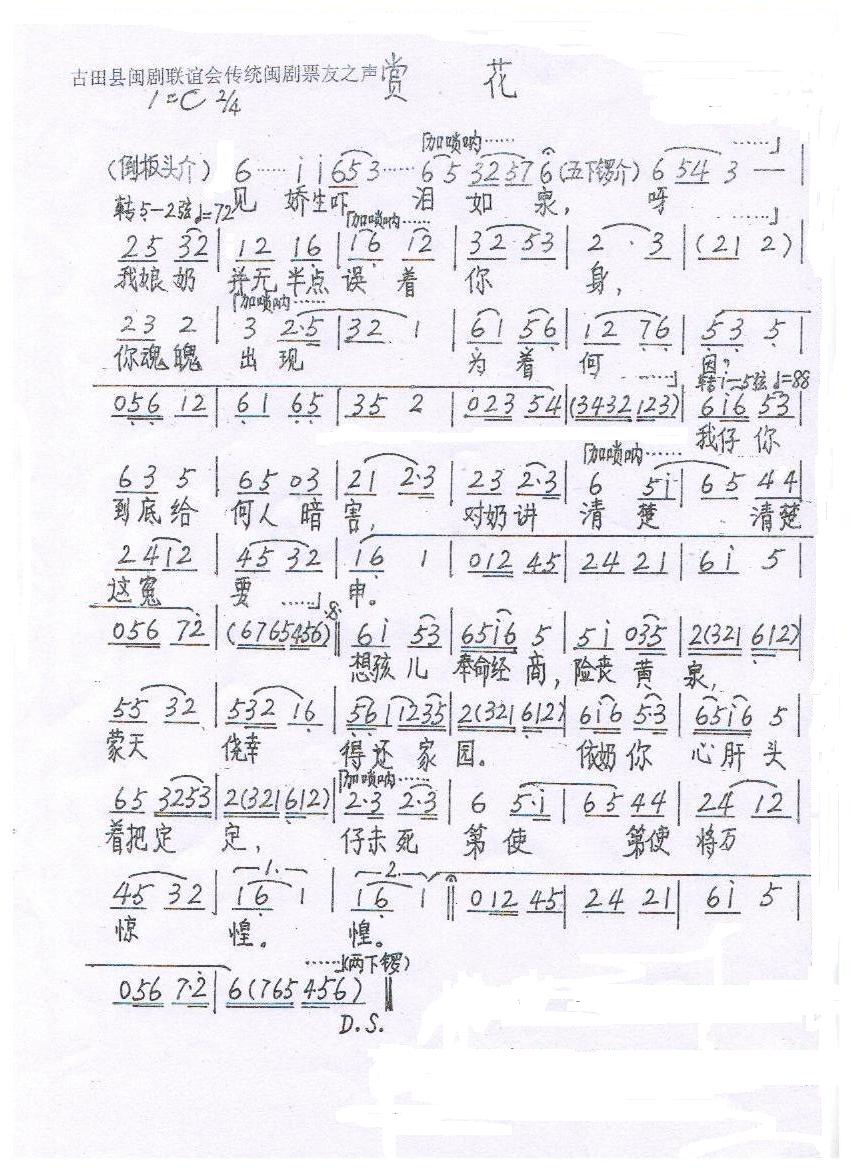 古田县闽剧联谊会传统闽剧票友之声 赏 花
1=C 2/4
「加唢呐…… ……」
(倒板头介) 6…… i i 653…… 65 3257 6 (五下锣介) 6 54 3 — |
见 娇生吓 泪 如 泉, 呀
转5-2弦 ♩=72 「加唢呐…… ……」
25 32 | 12 16 | 16 12 | 32·53 | 2 · 3 | (21 2) |
我娘奶 并无半点误着 你 身,
「加唢呐……
23 2 | 3 2·5 | 32 1 | 61 56 | 12 76 | 53 5 |
你魂魄 出现 为着 何 因?
……」 转i-5弦 ♩=88
056 12 | 61 65 | 35 2 | 023 54 | (3432 123) | 6i6 53 |
我仔你
「加唢呐……
63 5 | 65 03 | 21 2·3 | 23 2·3 | 6 5i | 65 44 |
到底给 何人暗害, 对奶讲 清楚 清楚
2412 | 45 32 | 16 1 | 012 45 | 24 21 | 6i 5 |
这冤 要 ……」 申。
056 72 | (6765 456) ‖ 6i 53 | 65i6 5 | 5i 035 | 2(321 612) |
想孩儿 奉命经商, 险丧黄 泉,
55 32 | 532 16 | 561 1235 | 2(321 612) | 6i6 53 | 65i6 5
蒙天 侥幸 得还家 园。 依奶你 心肝头
65 3253 | 2(321 612) | 2·3 2·3 | 6 5·i | 65 44 | 24 12
「加唢呐……
着把定 定, 仔未死 第使 第使 将万
1. 2.
45 32 | i6 1 | i6 1 ‖ 012 45 | 24 21 | 6i 5 |
惊 惶。 惶。
……」(两下锣)
056 7·2 | 6(765 456) ‖
D.S.